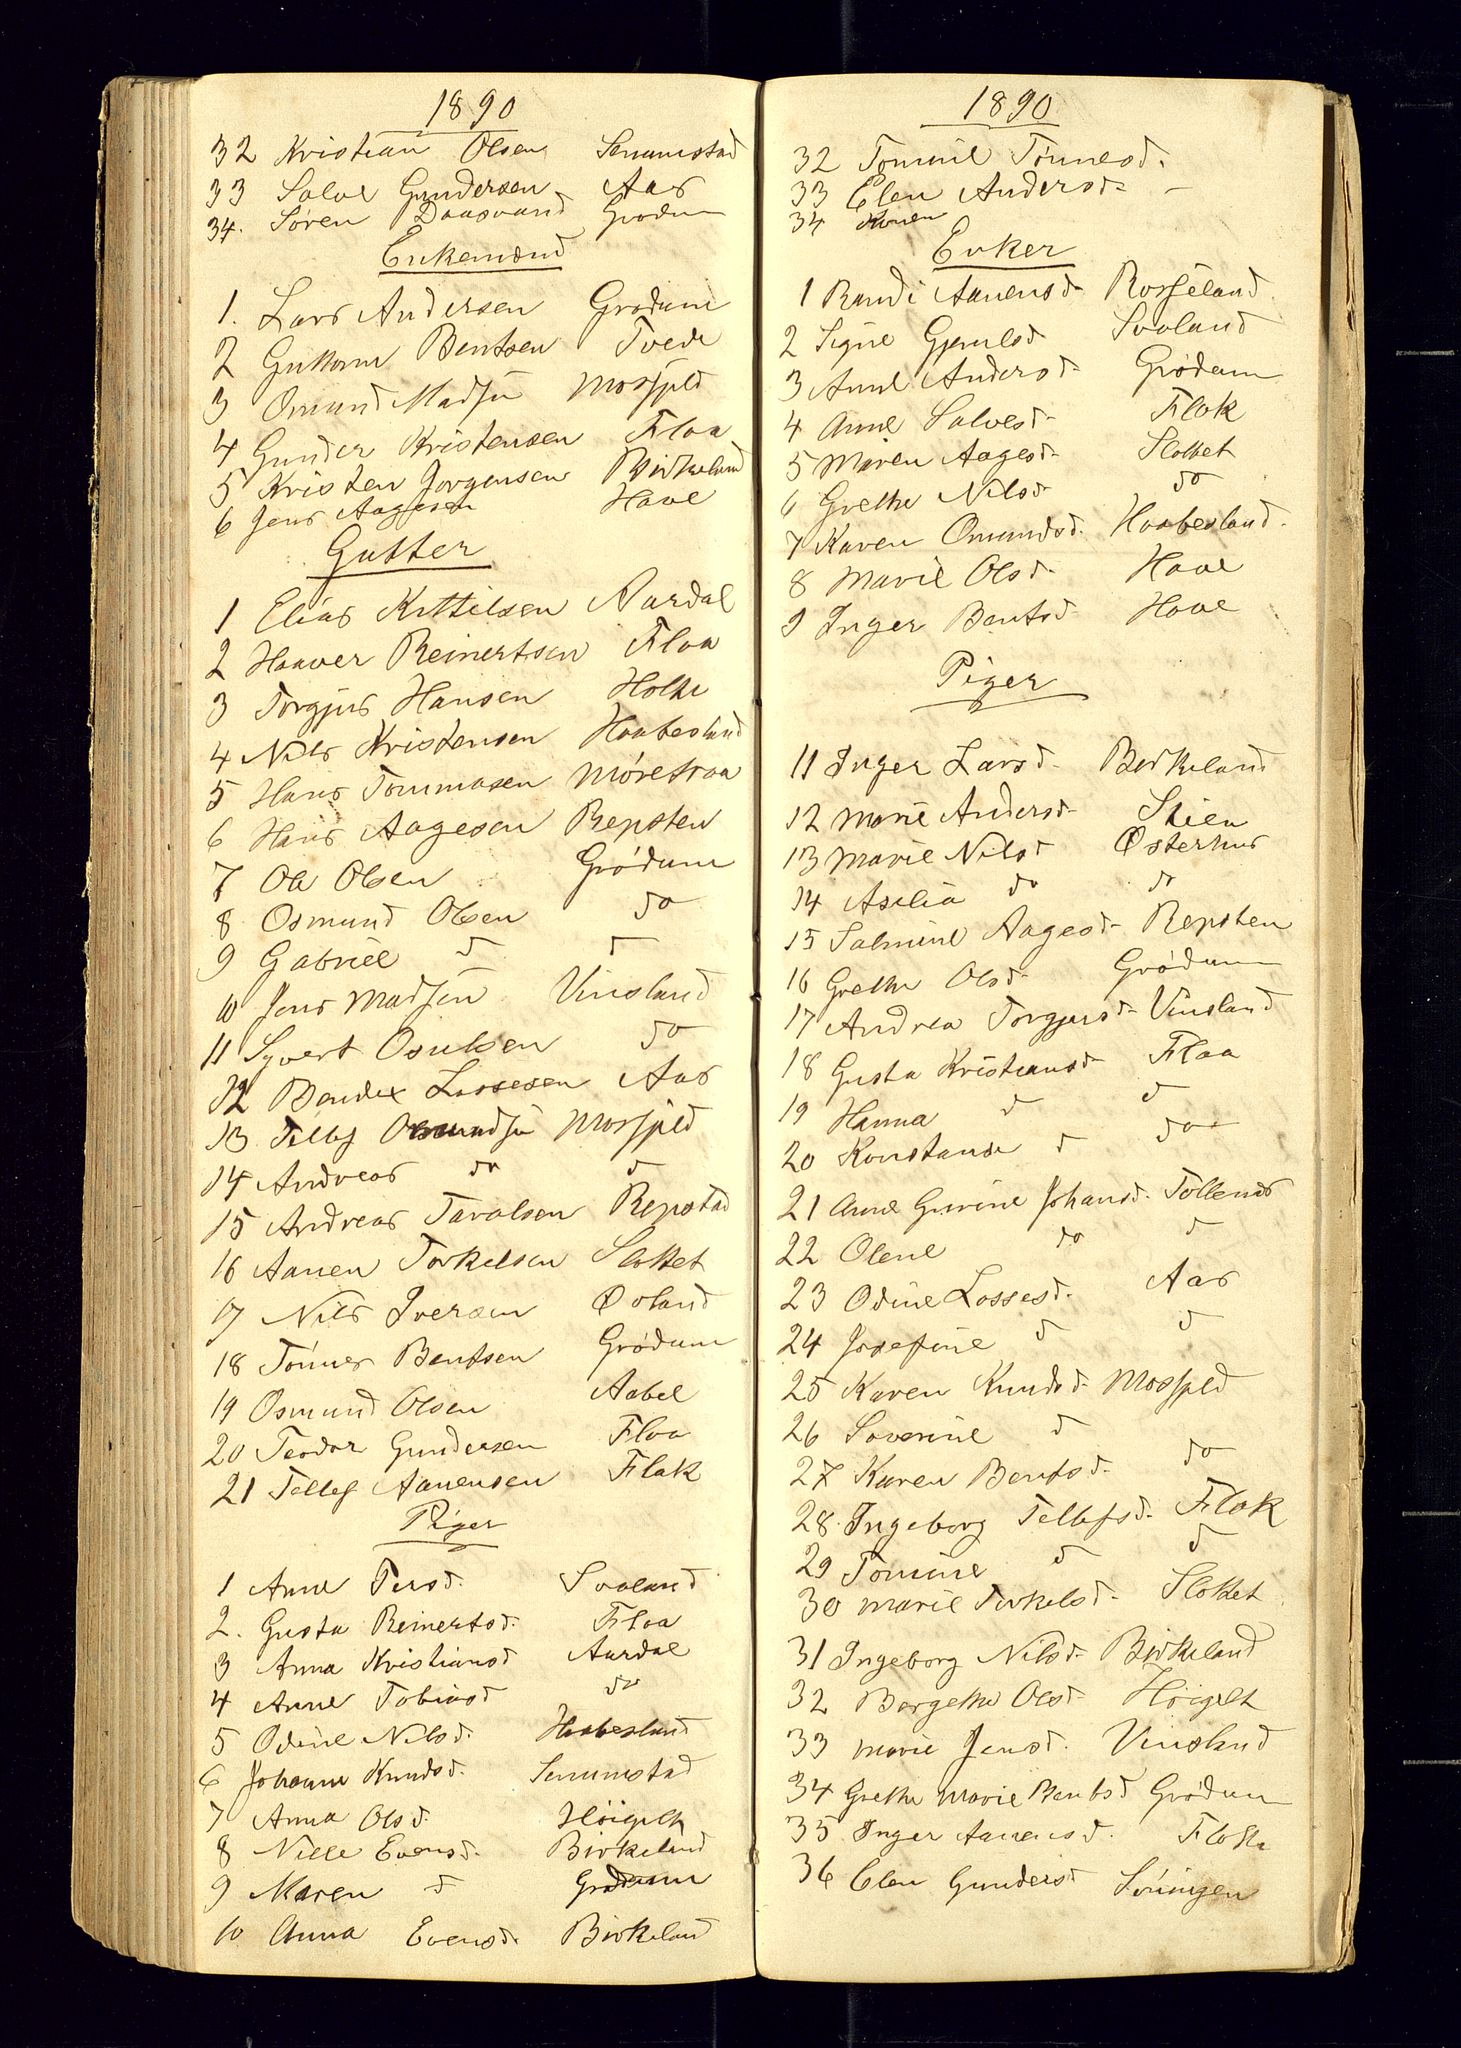 1890
32 Kristian Olsen Senumstad
33 Salve Gundersen Aas
34. Søren Daasvand Grødum
Enkemænd
1. Lars Andersen Grødum
2 Guttorm Bentsen Tvede
3 Omund Madsen Mosfjeld
4 Gunder Kristensen Flaa
5 Kristen Jørgensen Birkeland
6 Jens Aagesen Have
Gutter
1 Elias Kittilsen Aardal
2 Haaver Reinertsen Flaa
3 Torgjus Hansen Holte
4 Nils Kristensen Haabesland
5 Hans Tommasen Møretraa
6 Hans Aagesen Repsten
7 Ole Olsen Grødum
8 Osmund Olsen do
9 Gabriel d d
10 Jens Madsen Vinsland
11 Syvert Osulsen do
12 Bendix Lassesen Aas
13 Tellef Osmundsen Mosfjeld
14 Andreas do d
15 Andreas Taralsen Repstad
16 Aanen Torkelsen Slottet
17 Nils Iversen Øvland
18 Tönnes Bentsen Grødum
19 Osmund Olsen Aabel
20 Teodor Gundersen Flaa
21 Tellef Aanensen Flak
Piger
1 Anne Tersd. Svaland
2. Gusta Reinertsd. Flaa
3 Anna Kristiansd Aardal
4 Anne Tobiasd do
5 Odine Nilsd. Haabesland
6 Johanne Knudsd. Senumstad
7 Anna Olsd. Höigilt
8 Nille Evensd. Birkeland
9 Maren d Grødum
10 Anna Evensd. Birkeland
1890
32 Tomine Tønnesd.
33 Elen Andersd. —
34 Konen
Enker
1 Randi Aanensd. Rosseland
2 Signe Gjerulsd Svaland
3 Anne Andersd. Grødum
4 Anne Salvesd. Flak
5 Maren Aagesd. Slottet
6 Grethe Nilsd. do
7 Karen Omundsd. Haabesland.
8 Marie Olsd. Have
9 Inger Bentsd. Have
Piger
11 Inger Larsd. Birkeland
12 Marie Andersd. Skien
13 Marie Nilsd Østerhus
14 Asilia do do
15 Salmine Aagesd. Repsten
16 Grethe Olsd. Grødum
17 Andrea Torgjusd. Vinsland
18 Gusta Kristiansd. Flaa
19 Hanna d d
20 Konstanse d do
21 Anne Gurine Johansd. Tollenes
22 Olene do d
23 Odine Lassesd. Aas
24 Josefine d d
25 Karen Knudsd. Mosfjeld
26 Saverine d
27 Karen Bentsd. do
28. Ingeborg Tellefsd. Flak
29 Tomine d d
30 Marie Torkelsd. Slottet
31 Ingeborg Nilsd. Birkeland
32 Bergethe Olsd. Höigilt
33 Marie Jensd. Vinsland
34 Grethe Marie Bentsd Grødum
35 Inger Aanensd. Flakk
36 Elen Gundersd Söningen